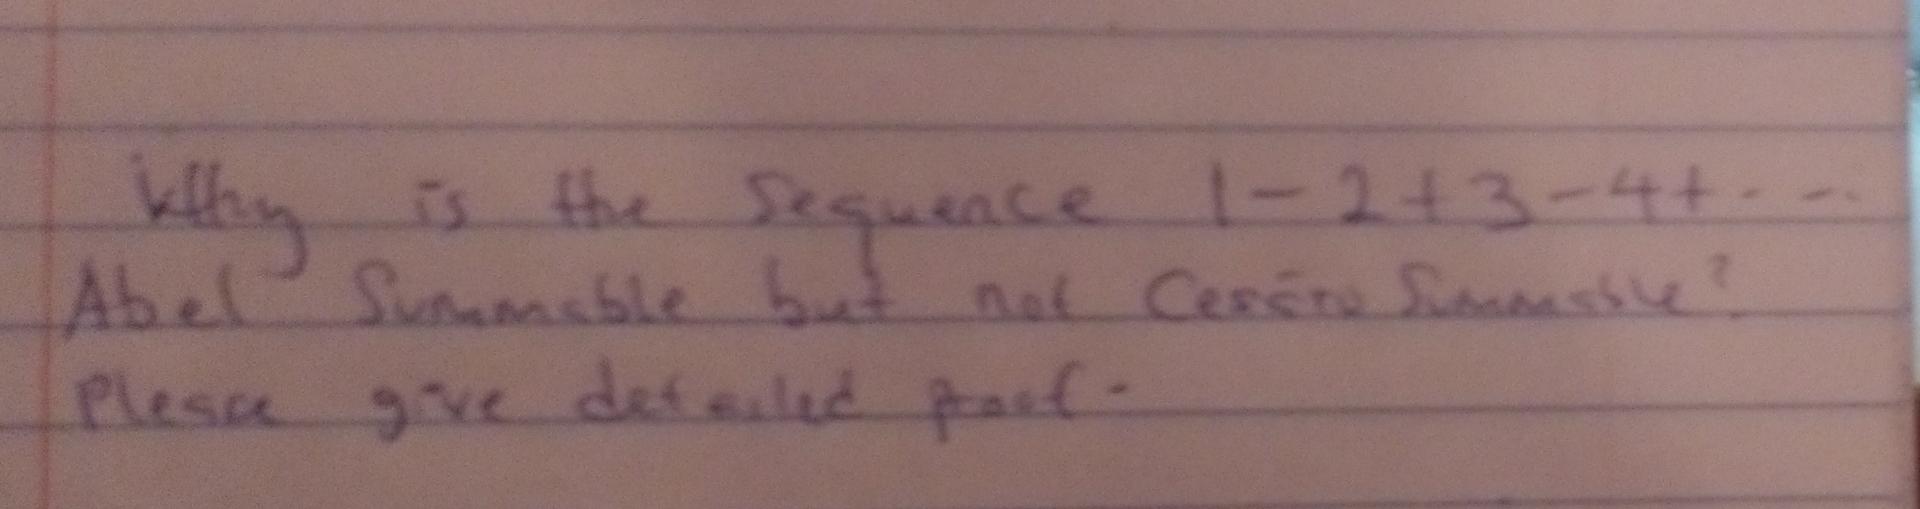 Why is the Sequence 1-2+3-4+...
Abel Summable but not Cesāro Summable?
Please give detailed proof.